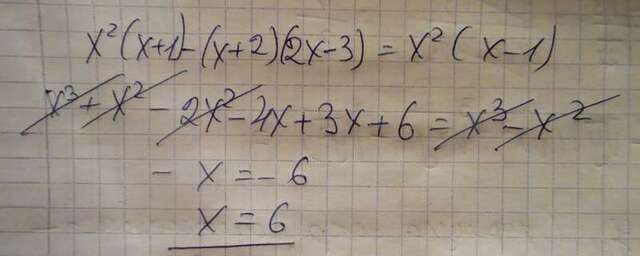 x²(x+1)-(x+2)(2x-3)=x²(x-1)
x³+x²-2x²-4x+3x+6=x³-x²
-x=-6
x=6